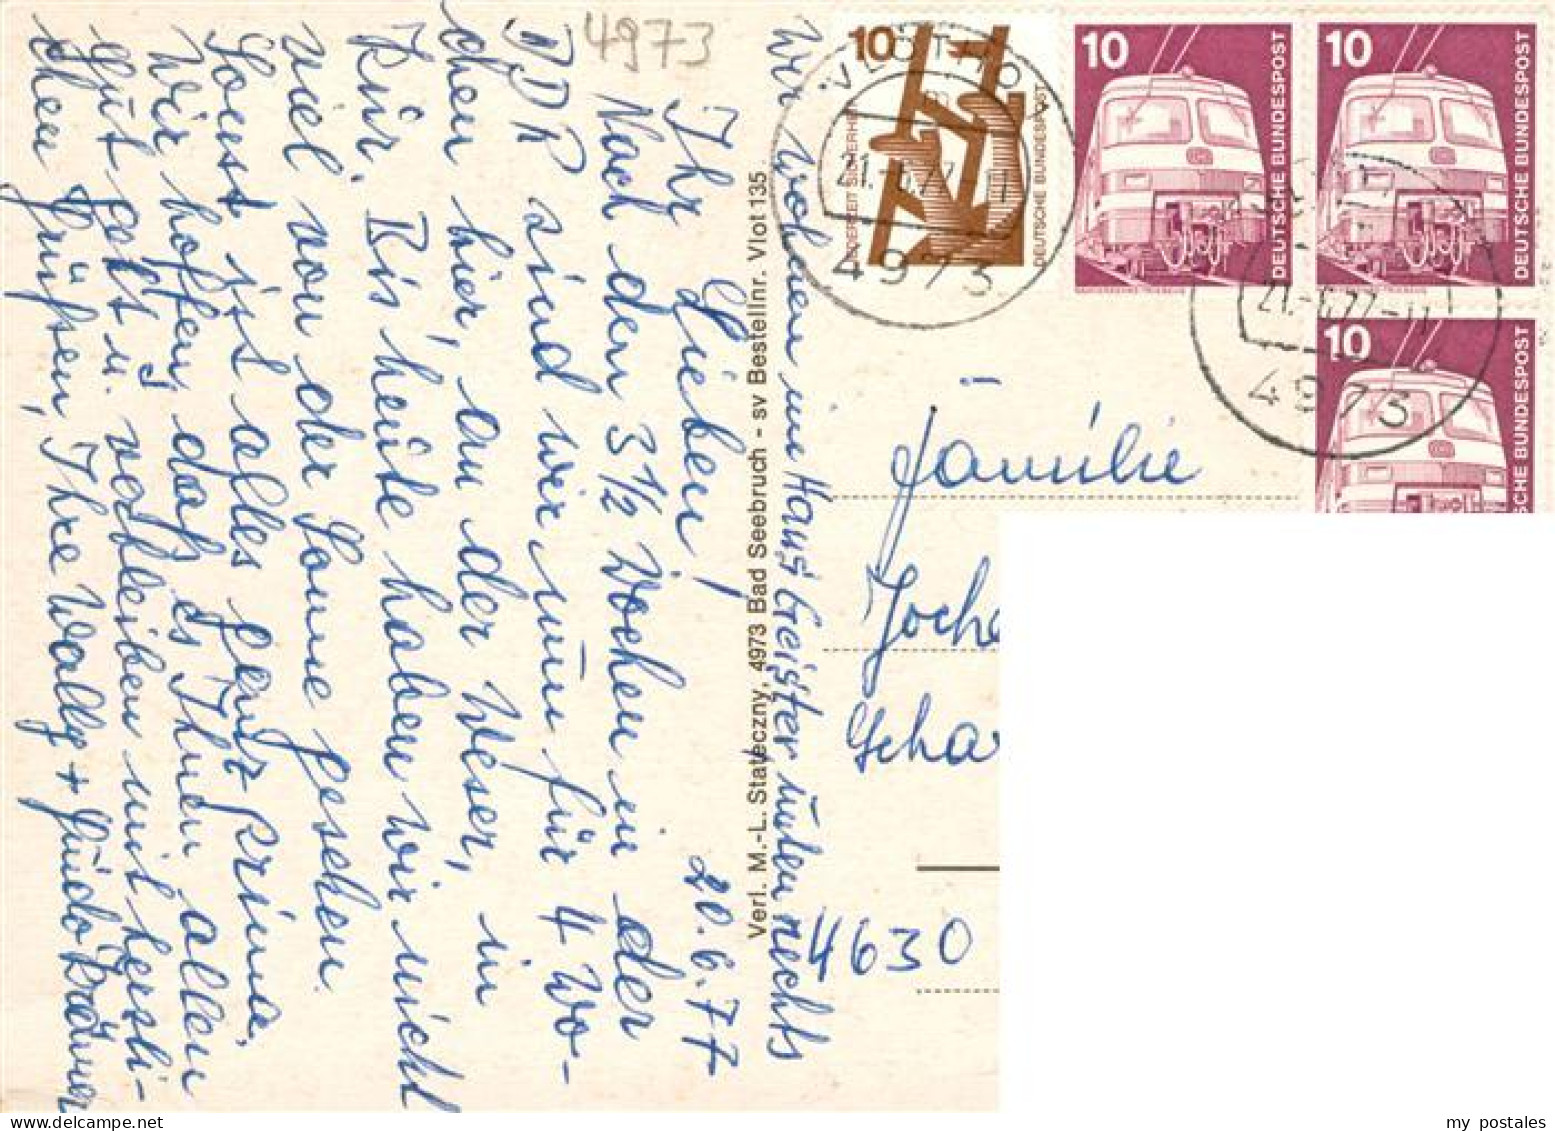 4973
20.6.77
Ihr Lieben!
Nach den 3 1/2 Wochen in der
DDR sind wir nun für 4 Wo-
chen hier, an der Weser, in
Kur. Bis heute haben wir nicht
viel von der Sonne gesehen.
Sonst ist alles ganz prima.
Wir hoffen, daß es Ihnen allen
gut geht u. verbleiben mit herzli-
chen Grüßen, Ihre Wally + Guido
Wir wohnen im Haus Geister unten rechts
Verl. M.-L. Stateczny, 4973 Bad Seebruch - sv Bestellnr. Vlot 135
Familie
Joche
Scha
4630
10
JEDERZEIT SICHERHEIT
DEUTSCHE BUNDESPOST
VLOTHO 1
21.-6.77-11
4973
10
DEUTSCHE BUNDESPOST
10
DEUTSCHE BUNDESPOST
21.-6.77-11
4973
10
SCHE BUNDESPOST
my postales